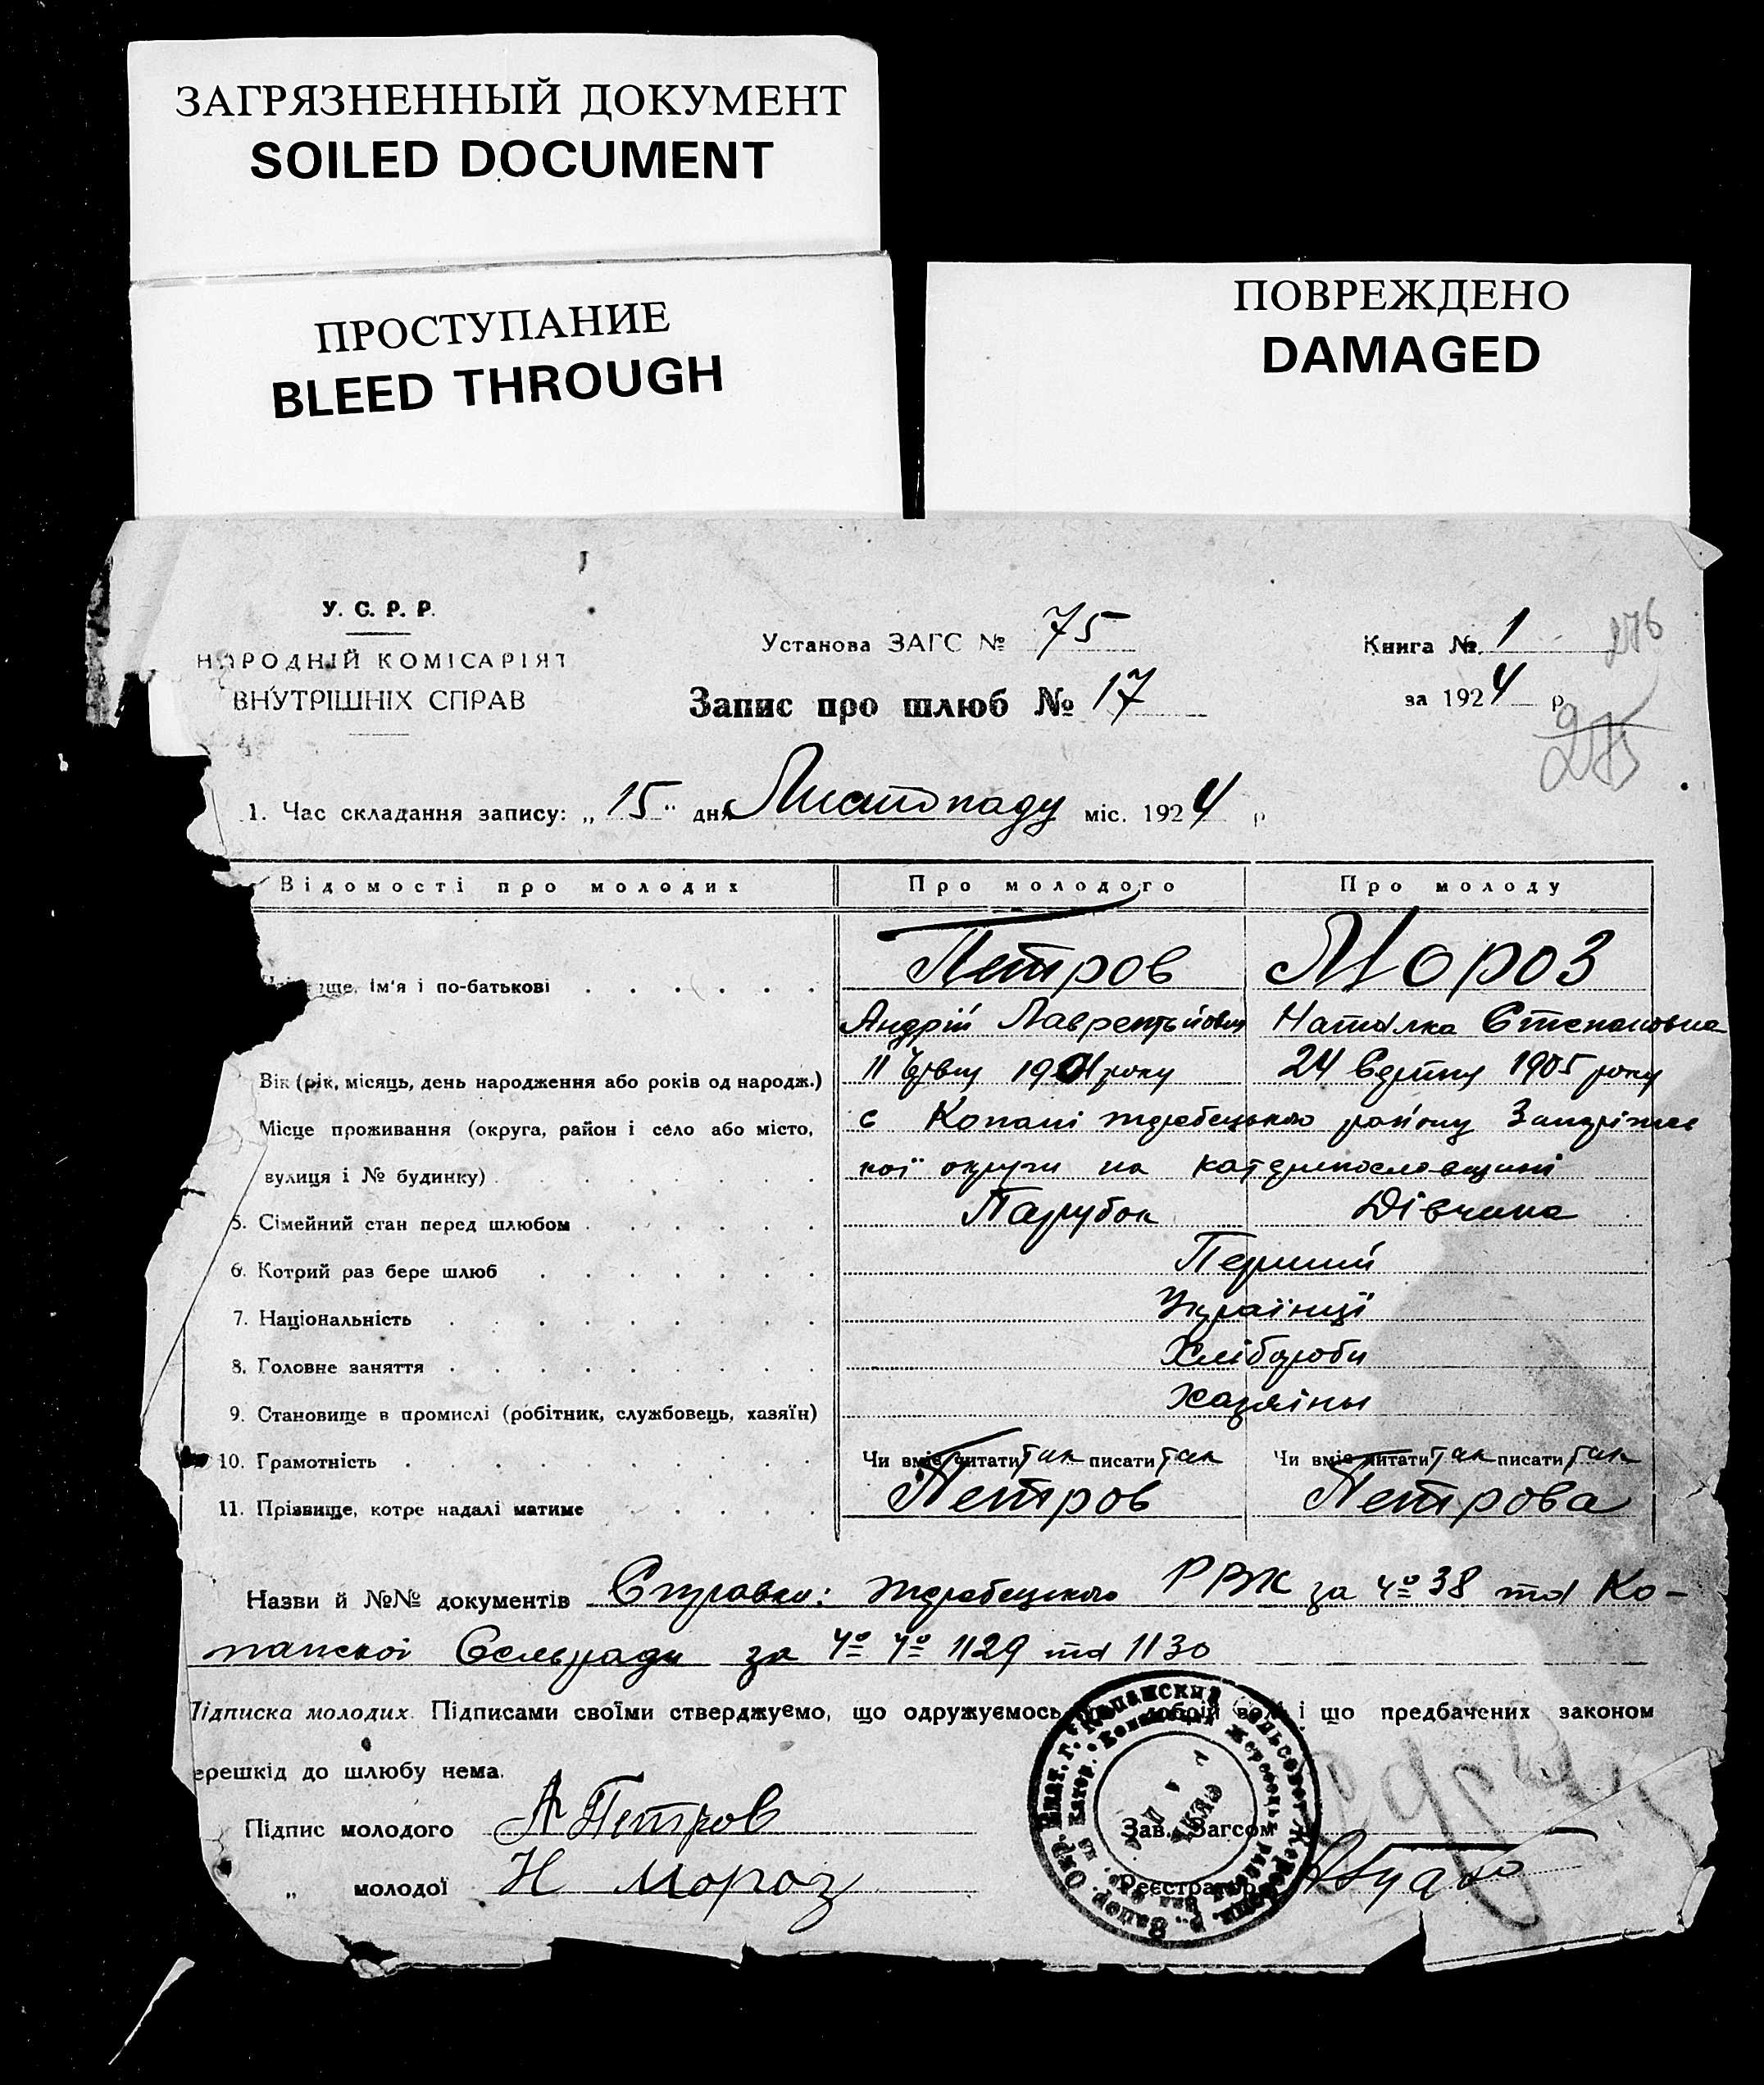 ЗАГРЯЗНЕННЫЙ ДОКУМЕНТ
SOILED DOCUMENT
ПРОСТУПАНИЕ
BLEED THROUGH
ПОВРЕЖДЕНО
DAMAGED
У. С. Р. Р.
НАРОДНІЙ КОМІСАРІЯТ
ВНУТРІШНІХ СПРАВ
Установа ЗАГС № 75
Запис про шлюб № 17
Книга № 1
276
за 1924 р
275
1. Час складання запису: „15" дня Листопаду міс. 1924 р
Відомості про молодих Про молодого Про молоду
ще, ім'я і по-батькові Петров Мороз
Андрій Лаврентьйович Наталка Степановна
Вік (рік, місяць, день народження або років од народж.) 11 1901 року 24 1905 року
Місце проживання (округа, район і село або місто, с Копані Жеребецького району Запоріжсь
вулиця і № будинку) кої округи на Катеринославщині
5. Сімейний стан перед шлюбом Парубок Дівчина
6. Котрий раз бере шлюб Перший
7. Національність Українці
8. Головне заняття Хлібороби
9. Становище в промислі (робітник, службовець, хазяїн) Хазяіни
10. Грамотність Чи вміє читати так писати так Чи вміє читати так писати так
11. Прізвище, котре надалі матиме Петров Петрова
Назви й №№ документів Справки: Жеребецького РВК за № 38 та Ко-
панської Сельради за № № 1129 та 1130
Підписка молодих. Підписами своїми стверджуємо, що одружуємось добрій волі і що предбачених законом
ерешкід до шлюбу нема.
Підпис молодого А Петров
„ молодої Н Мороз
Зав. Загсом
Реєстратор